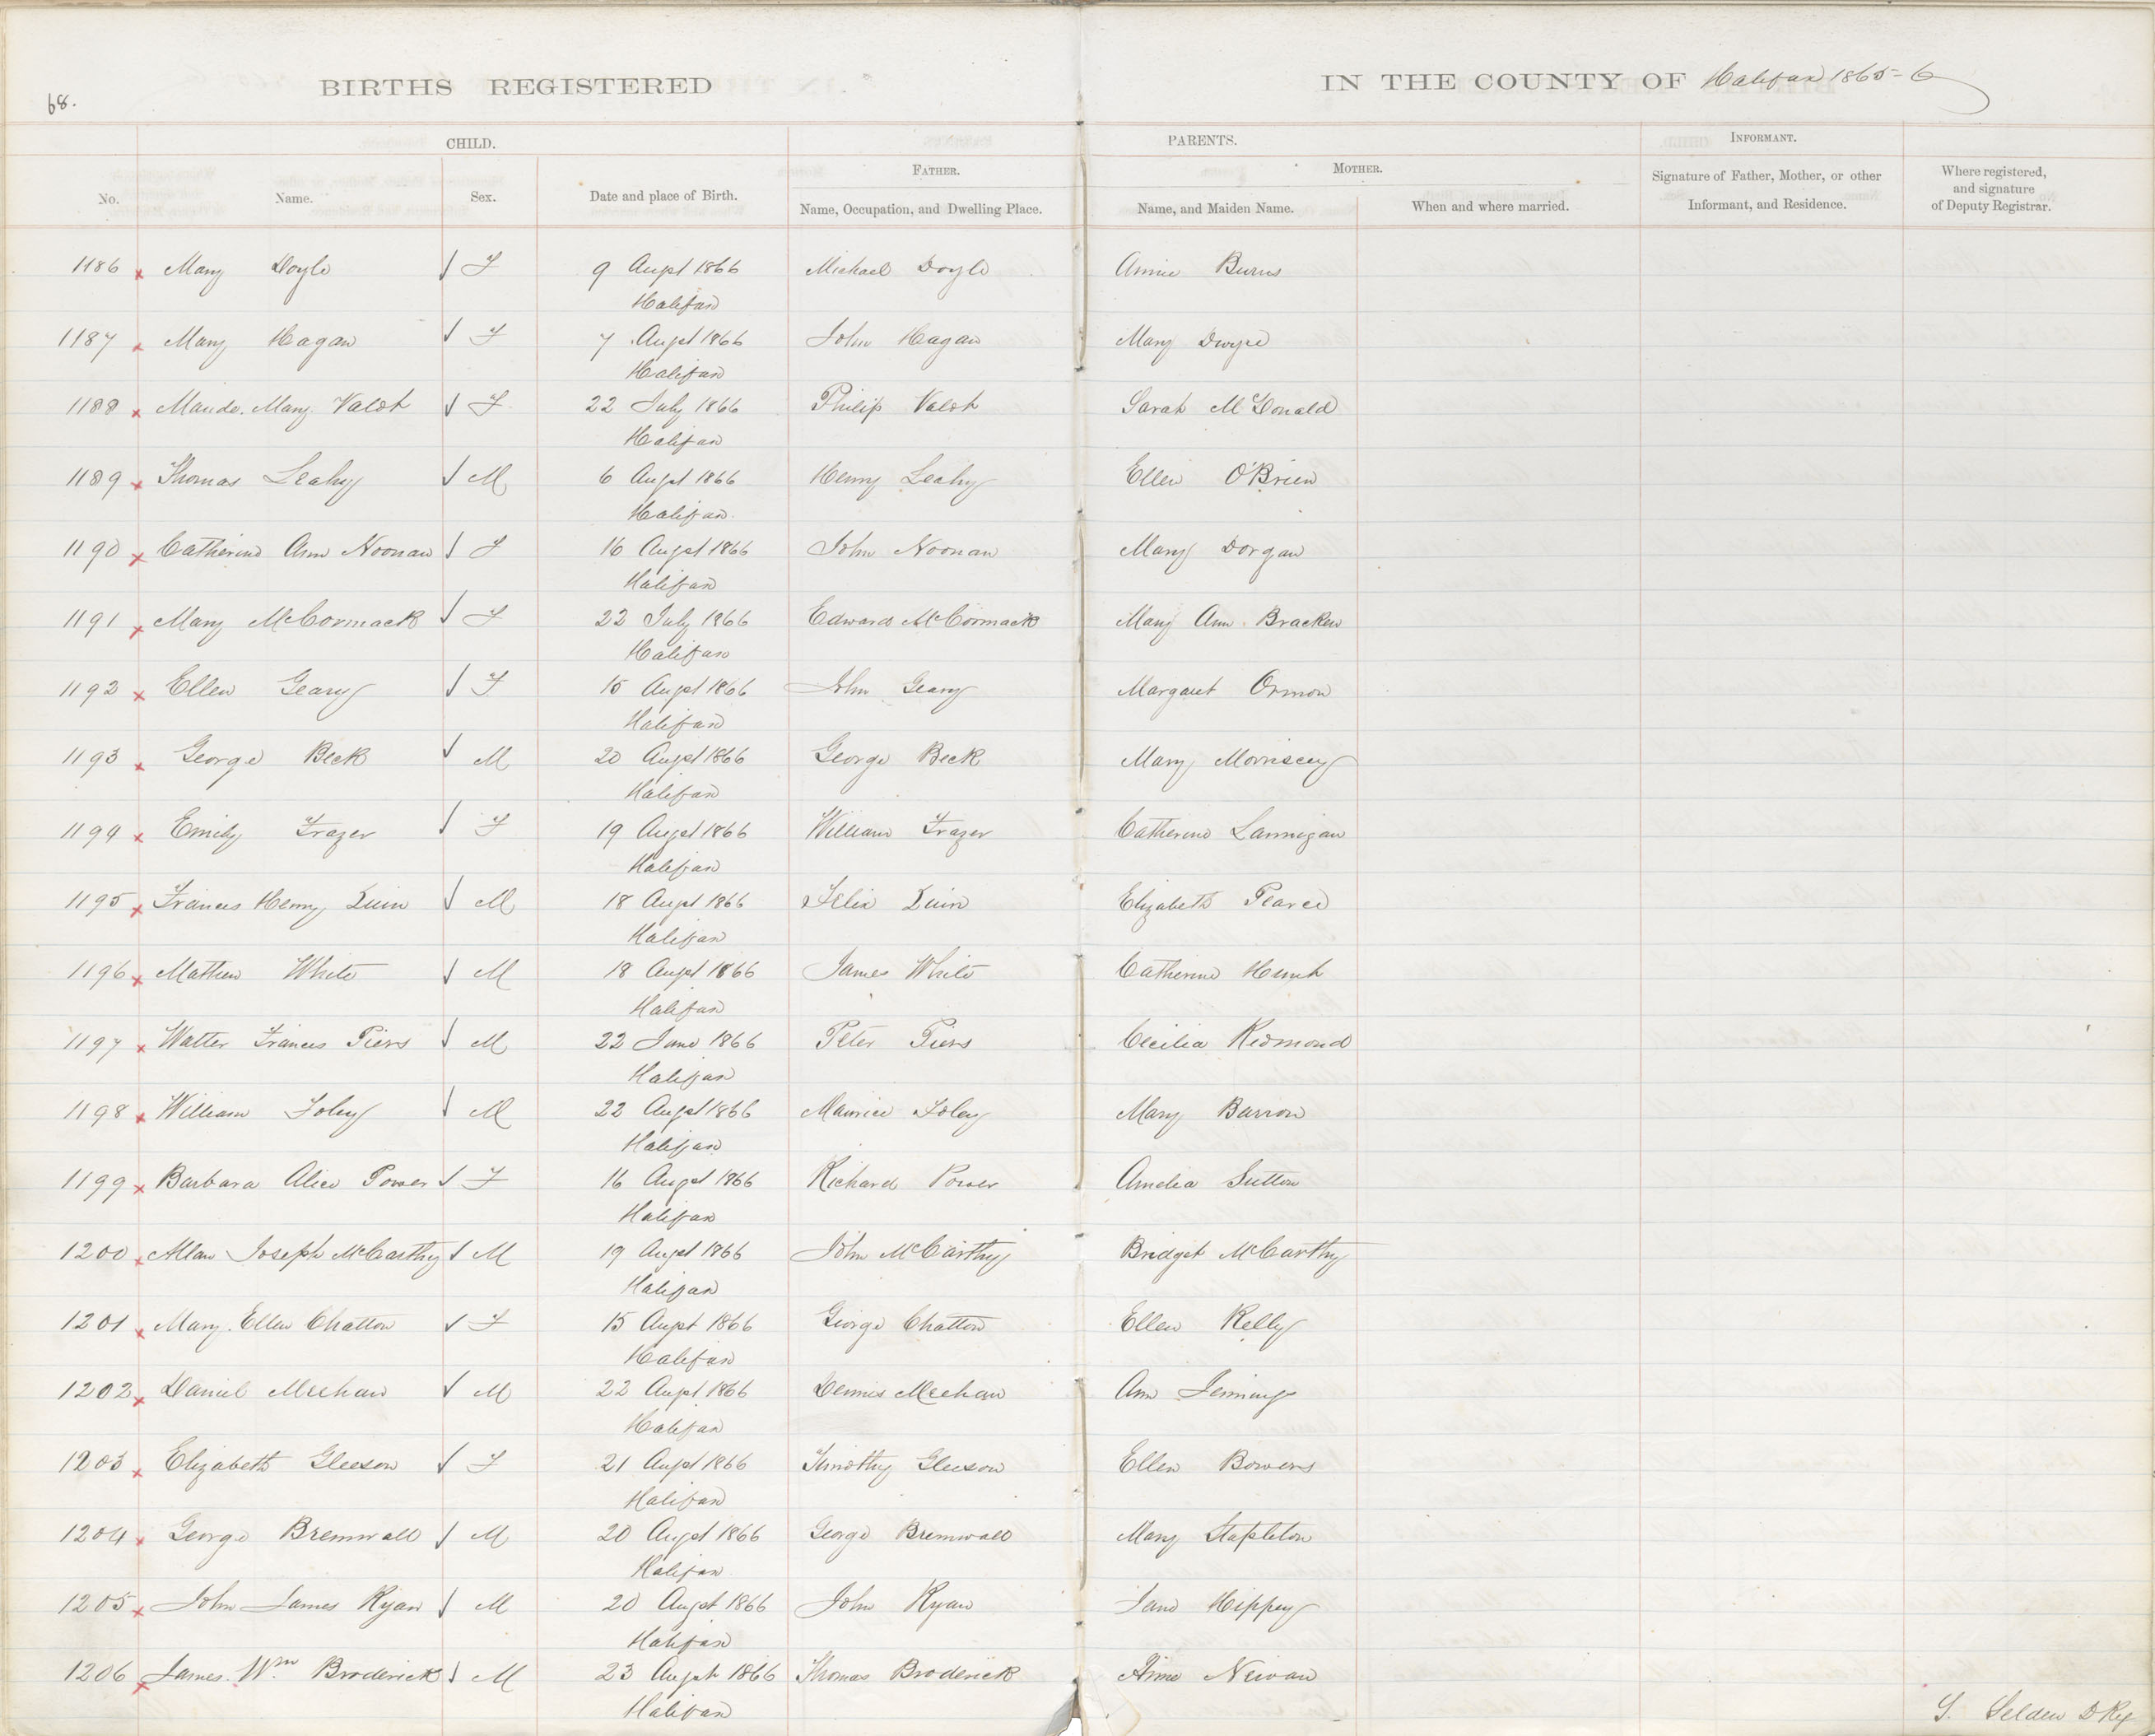 68.
BIRTHS REGISTERED
IN THE COUNTY OF Halifax 1865-6
CHILD.
PARENTS.
INFORMANT.
No.
Name.
Sex.
Date and place of Birth.
FATHER.
Name, Occupation, and Dwelling Place.
MOTHER.
Name, and Maiden Name.
When and where married.
Signature of Father, Mother, or other
Informant, and Residence.
Where registered,
and signature
of Deputy Registrar.
1186 x Mary Doyle √ F 9 Augst 1866 Michael Doyle Annie Burns
Halifax
1187 x Mary Hagan √ F 7 Augst 1866 John Hagan Mary Dwyre
Halifax
1188 x Maude Mary √ F 22 July 1866 Philip Sarah McDonald
Halifax
1189 x Thomas Leahy √ M 6 Augst 1866 Henry Leahy Ellen O'Brien
Halifax
1190 x Catherine Ann Noonan √ F 16 Augst 1866 John Noonan Mary Dorgan
Halifax
1191 x Mary McCormack √ F 22 July 1866 Edward McCormack Mary Ann Bracken
Halifax
1192 x Ellen Geary √ F 15 Augst 1866 John Geary Margaret Ormon
Halifax
1193 x George Beck √ M 20 Augst 1866 George Beck Mary Morriscey
Halifax
1194 x Emily Frazer √ F 19 Augst 1866 William Frazer Catherine Lannigan
Halifax
1195 x Frances Henry Quin √ M 18 Augst 1866 Felix Quin Elizabeth Pearce
Halifax
1196 x Mathew White √ M 18 Augst 1866 James White Catherine
Halifax
1197 x Walter Frances Piers √ M 22 June 1866 Peter Piers Cecilia Redmond
Halifax
1198 x William Foley √ M 22 Augst 1866 Maurice Foley Mary Barron
Halifax
1199 x Barbara Alice Power √ F 16 Augst 1866 Richard Power Amelia Sutton
Halifax
1200 x Allan Joseph McCarthy √ M 19 Augst 1866 John McCarthy Bridget McCarthy
Halifax
1201 x Mary Ellen Chatton √ F 15 Augst 1866 George Chatton Ellen Kelly
Halifax
1202 x Daniel Meehan √ M 22 Augst 1866 Dennis Meehan Ann Jennings
Halifax
1203 x Elizabeth Gleeson √ F 21 Augst 1866 Timothy Gleeson Ellen Bowers
Halifax
1204 x George Bremwall √ M 20 Augst 1866 George Bremwall Mary Stapleton
Halifax
1205 x John James Ryan √ M 20 Augst 1866 John Ryan Jane Hippey
Halifax
1206 x James Wm Broderick √ M 23 Augst 1866 Thomas Broderick
Halifax
S. Selden D Rg